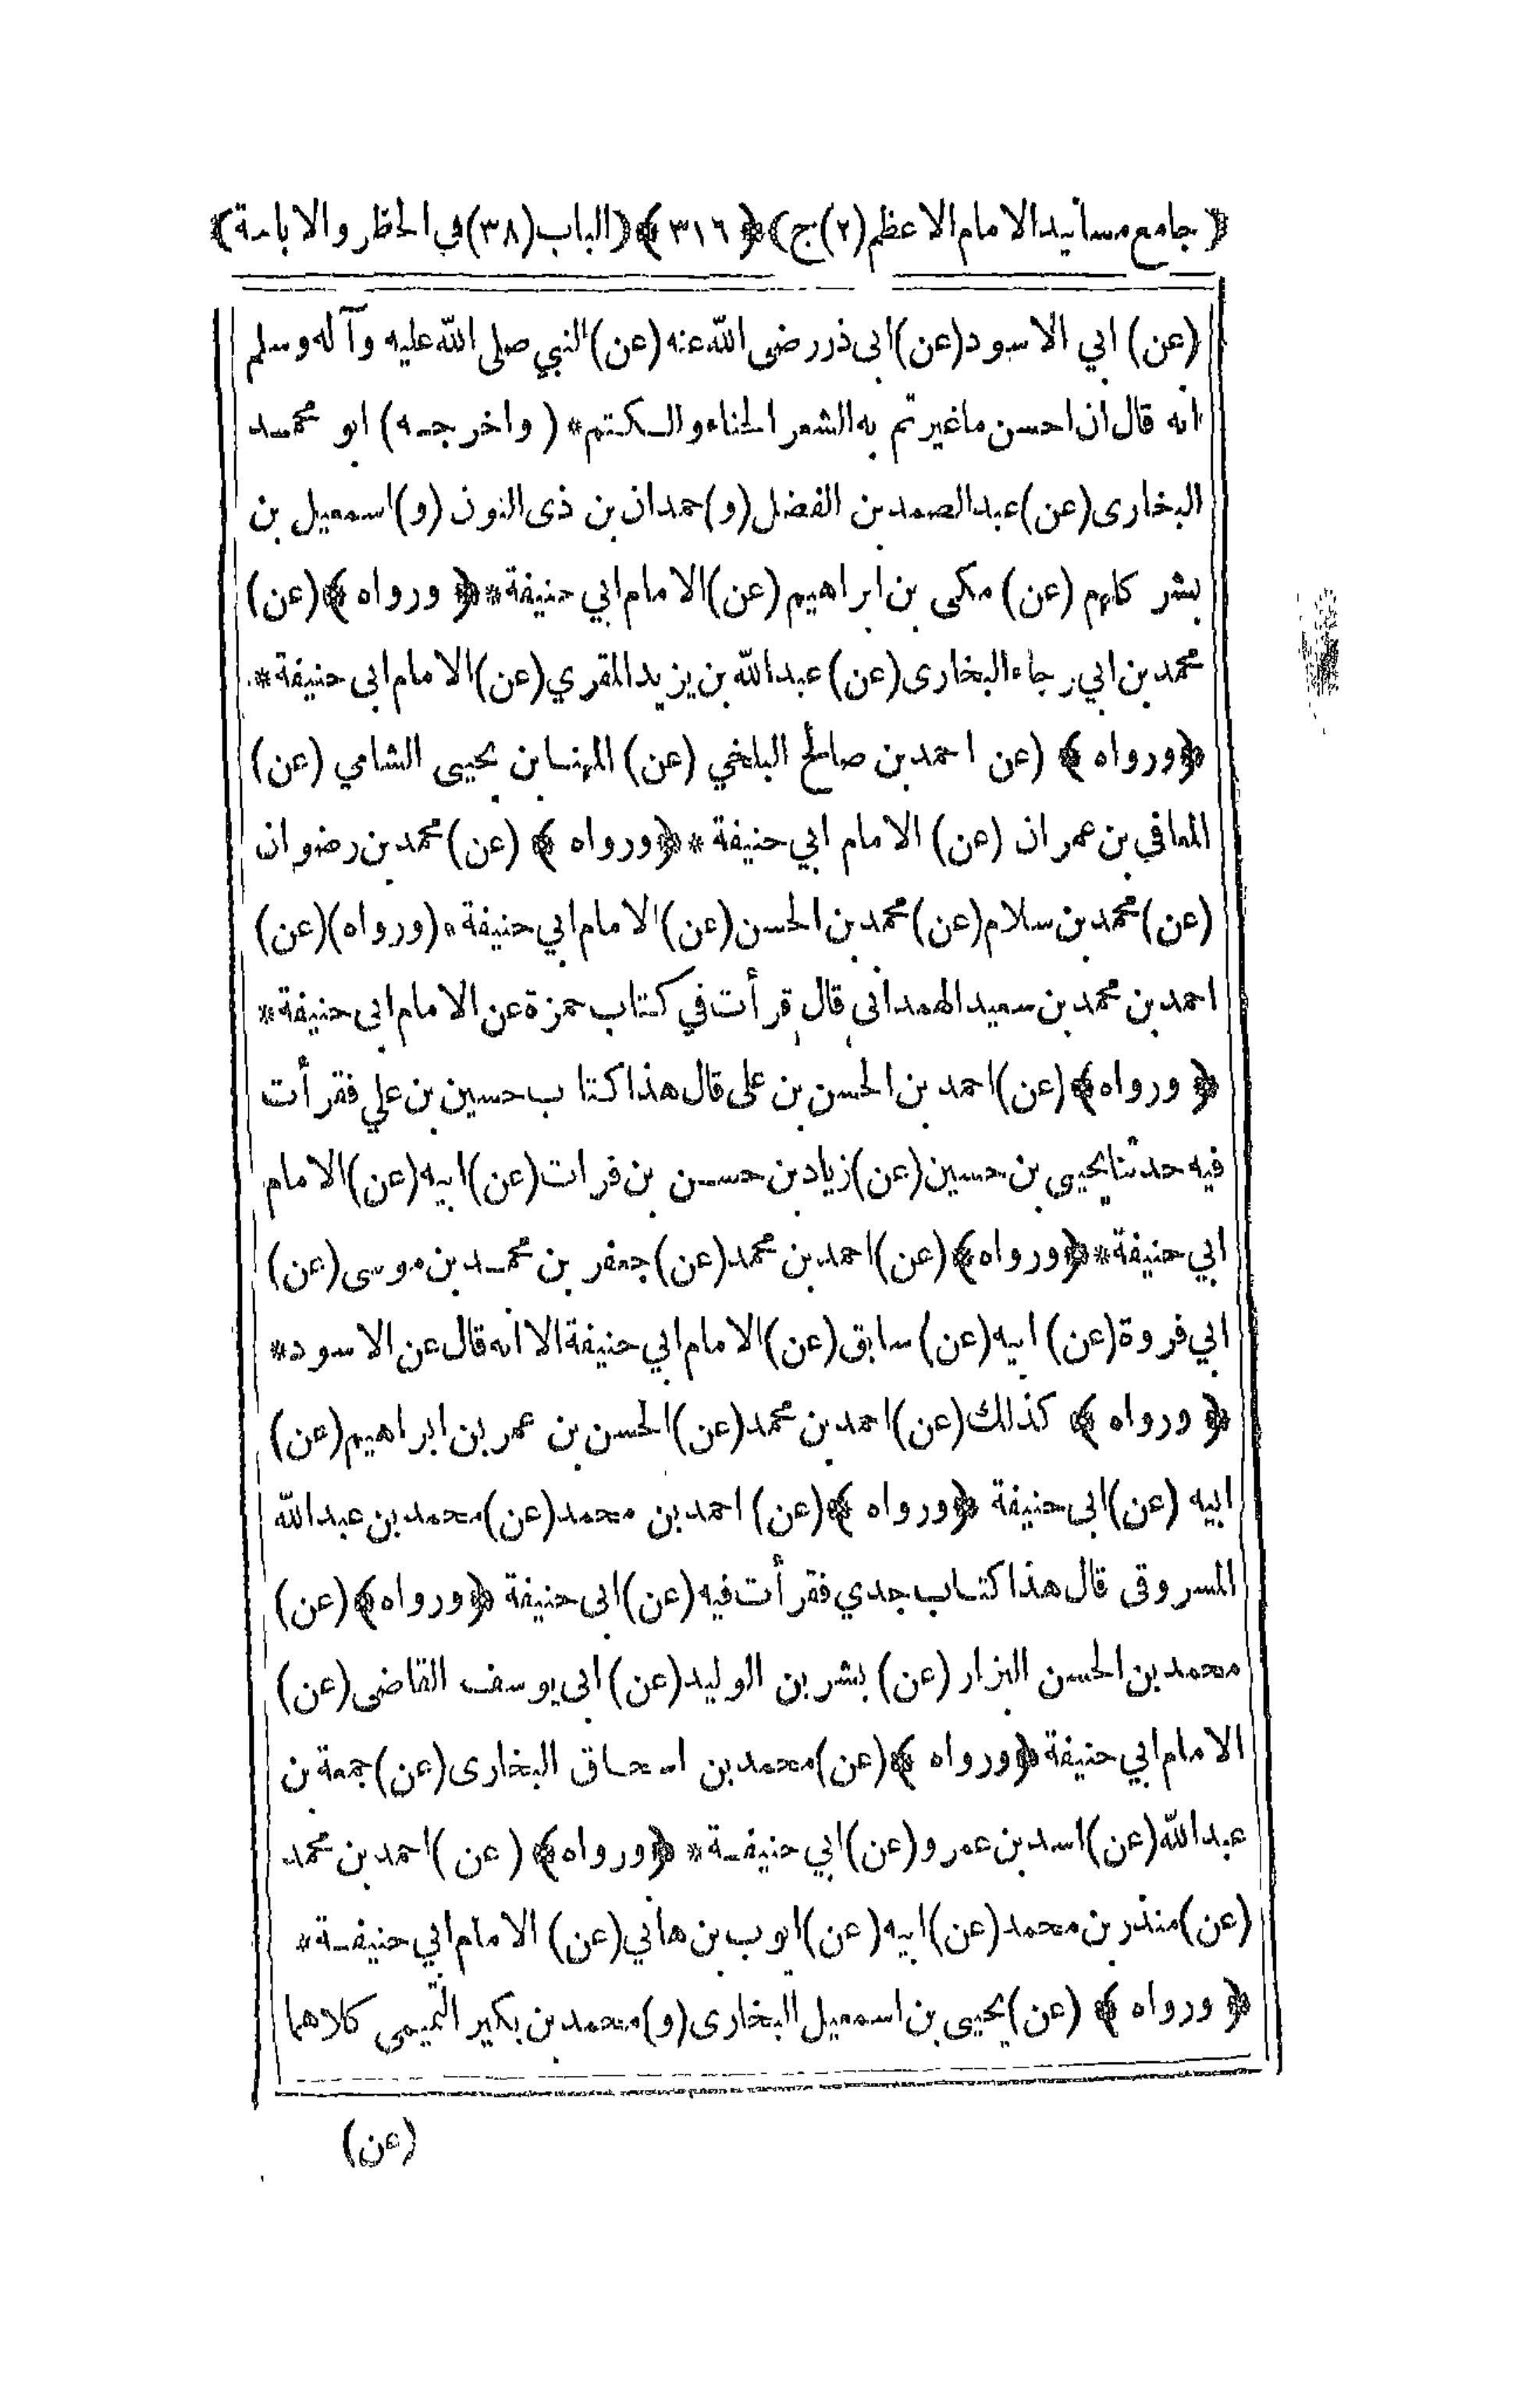 ﴿ جامع مسانيد الامام الاعظم (٢) ج﴾ ﴿ ٣١٦ ﴾ ﴿ الباب (٣٨) في الحظر والاباحة ﴾
(عن) ابي الاسود (عن) ابى ذر رضى الله عنه (عن) النبي صلى الله عليه وآله وسلم
انه قال ان احسن ما غيرتم به الشعر الحناء والكتم * ( واخرجه ) ابو محمد
البخارى (عن) عبد الصمد بن الفضل (و) حمدان بن ذى النون (و) اسمعيل بن
بشر كلهم (عن) مكى بن ابراهيم (عن) الامام ابي حنيفة * ﴿ ورواه ﴾ (عن)
محمد بن ابي رجاء البخارى (عن) عبد الله بن يزيد المقري (عن) الامام ابى حنيفة *
﴿ ورواه ﴾ (عن احمد بن صالح البلخي (عن) المهنا بن يحيى الشامي (عن)
المعافي بن عمران (عن) الامام ابي حنيفة * ﴿ ورواه ﴾ (عن) محمد بن رضوان
(عن) محمد بن سلام (عن) محمد بن الحسن (عن) الامام ابي حنيفة * (ورواه) (عن)
احمد بن محمد بن سعيد الهمدانى قال قرأت في كتاب حمزة عن الامام ابى حنيفة *
﴿ ورواه ﴾ (عن) احمد بن الحسن بن على قال هذا كتاب حسين بن علي فقرأت
فيه حدثنا يحيى بن حسين (عن) زياد بن حسن بن فرات (عن) ابيه (عن) الامام
ابي حنيفة * ﴿ ورواه ﴾ (عن) احمد بن محمد (عن) جعفر بن محمد بن موسى (عن)
ابي فروة (عن) ابيه (عن) سابق (عن) الامام ابي حنيفة الا انه قال عن الاسود *
﴿ ورواه ﴾ كذلك (عن) احمد بن محمد (عن) الحسن بن عمر بن ابراهيم (عن)
ابيه (عن) ابى حنيفة ﴿ ورواه ﴾ (عن) احمد بن محمد (عن) محمد بن عبد الله
المسروقى قال هذا كتاب جدي فقرأت فيه (عن) ابى حنيفة ﴿ ورواه ﴾ (عن)
محمد بن الحسن البزار (عن) بشر بن الوليد (عن) ابى يوسف القاضى (عن)
الامام ابي حنيفة ﴿ ورواه ﴾ (عن) محمد بن اسحاق البخارى (عن) جمعة بن
عبد الله (عن) اسد بن عمرو (عن) ابي حنيفة * ﴿ ورواه ﴾ ( عن ) احمد بن محمد
(عن) منذر بن محمد (عن) ابيه (عن) ايوب بن هاني (عن) الامام ابي حنيفة *
﴿ ورواه ﴾ (عن) يحيى بن اسمعيل البخارى (و) محمد بن بكير التميمى كلاهما
(عن)